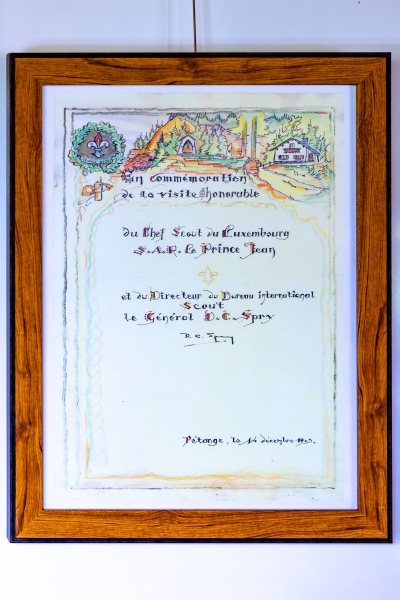 En commémoration
de la visite honorable
du Chef Scout du Luxembourg
S.A.R. Le Prince Jean
et du Directeur du Bureau international
Scout
le Général D.C. Spry
D. C. Spry
Pétange, le 14 décembre